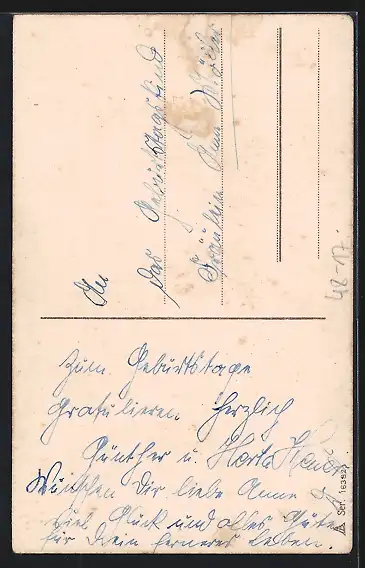 An
das Geburtstagskind
Fräulein
Zum Geburtstage
Gratulieren Herzlich
Günther u. Herta
Wünschen Dir liebe Anne
viel Glück und alles Gute
für Dein ferneres Leben.
48-17.
Ser. 16352